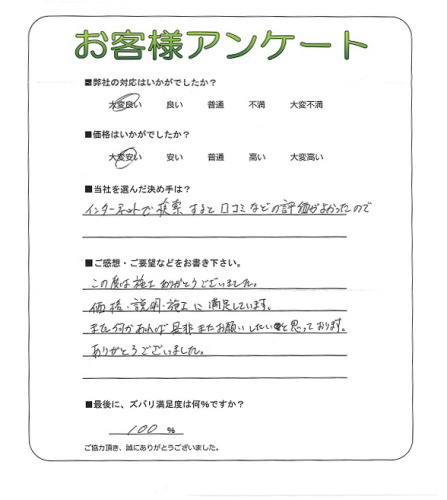 お客様アンケート
■弊社の対応はいかがでしたか?
大変良い 良い 普通 不満 大変不満
■価格はいかがでしたか?
大変安い 安い 普通 高い 大変高い
■当社を選んだ決め手は?
インターネットで検索すると口コミなどの評価がよかったので
■ご感想・ご要望などをお書き下さい。
この度は施工ありがとうございました。
価格・説明・施工に満足しています。
また何かあれば是非またお願いしたいと思っております。
ありがとうございました。
■最後に、ズバリ満足度は何%ですか?
100 %
ご協力頂き、誠にありがとうございました。